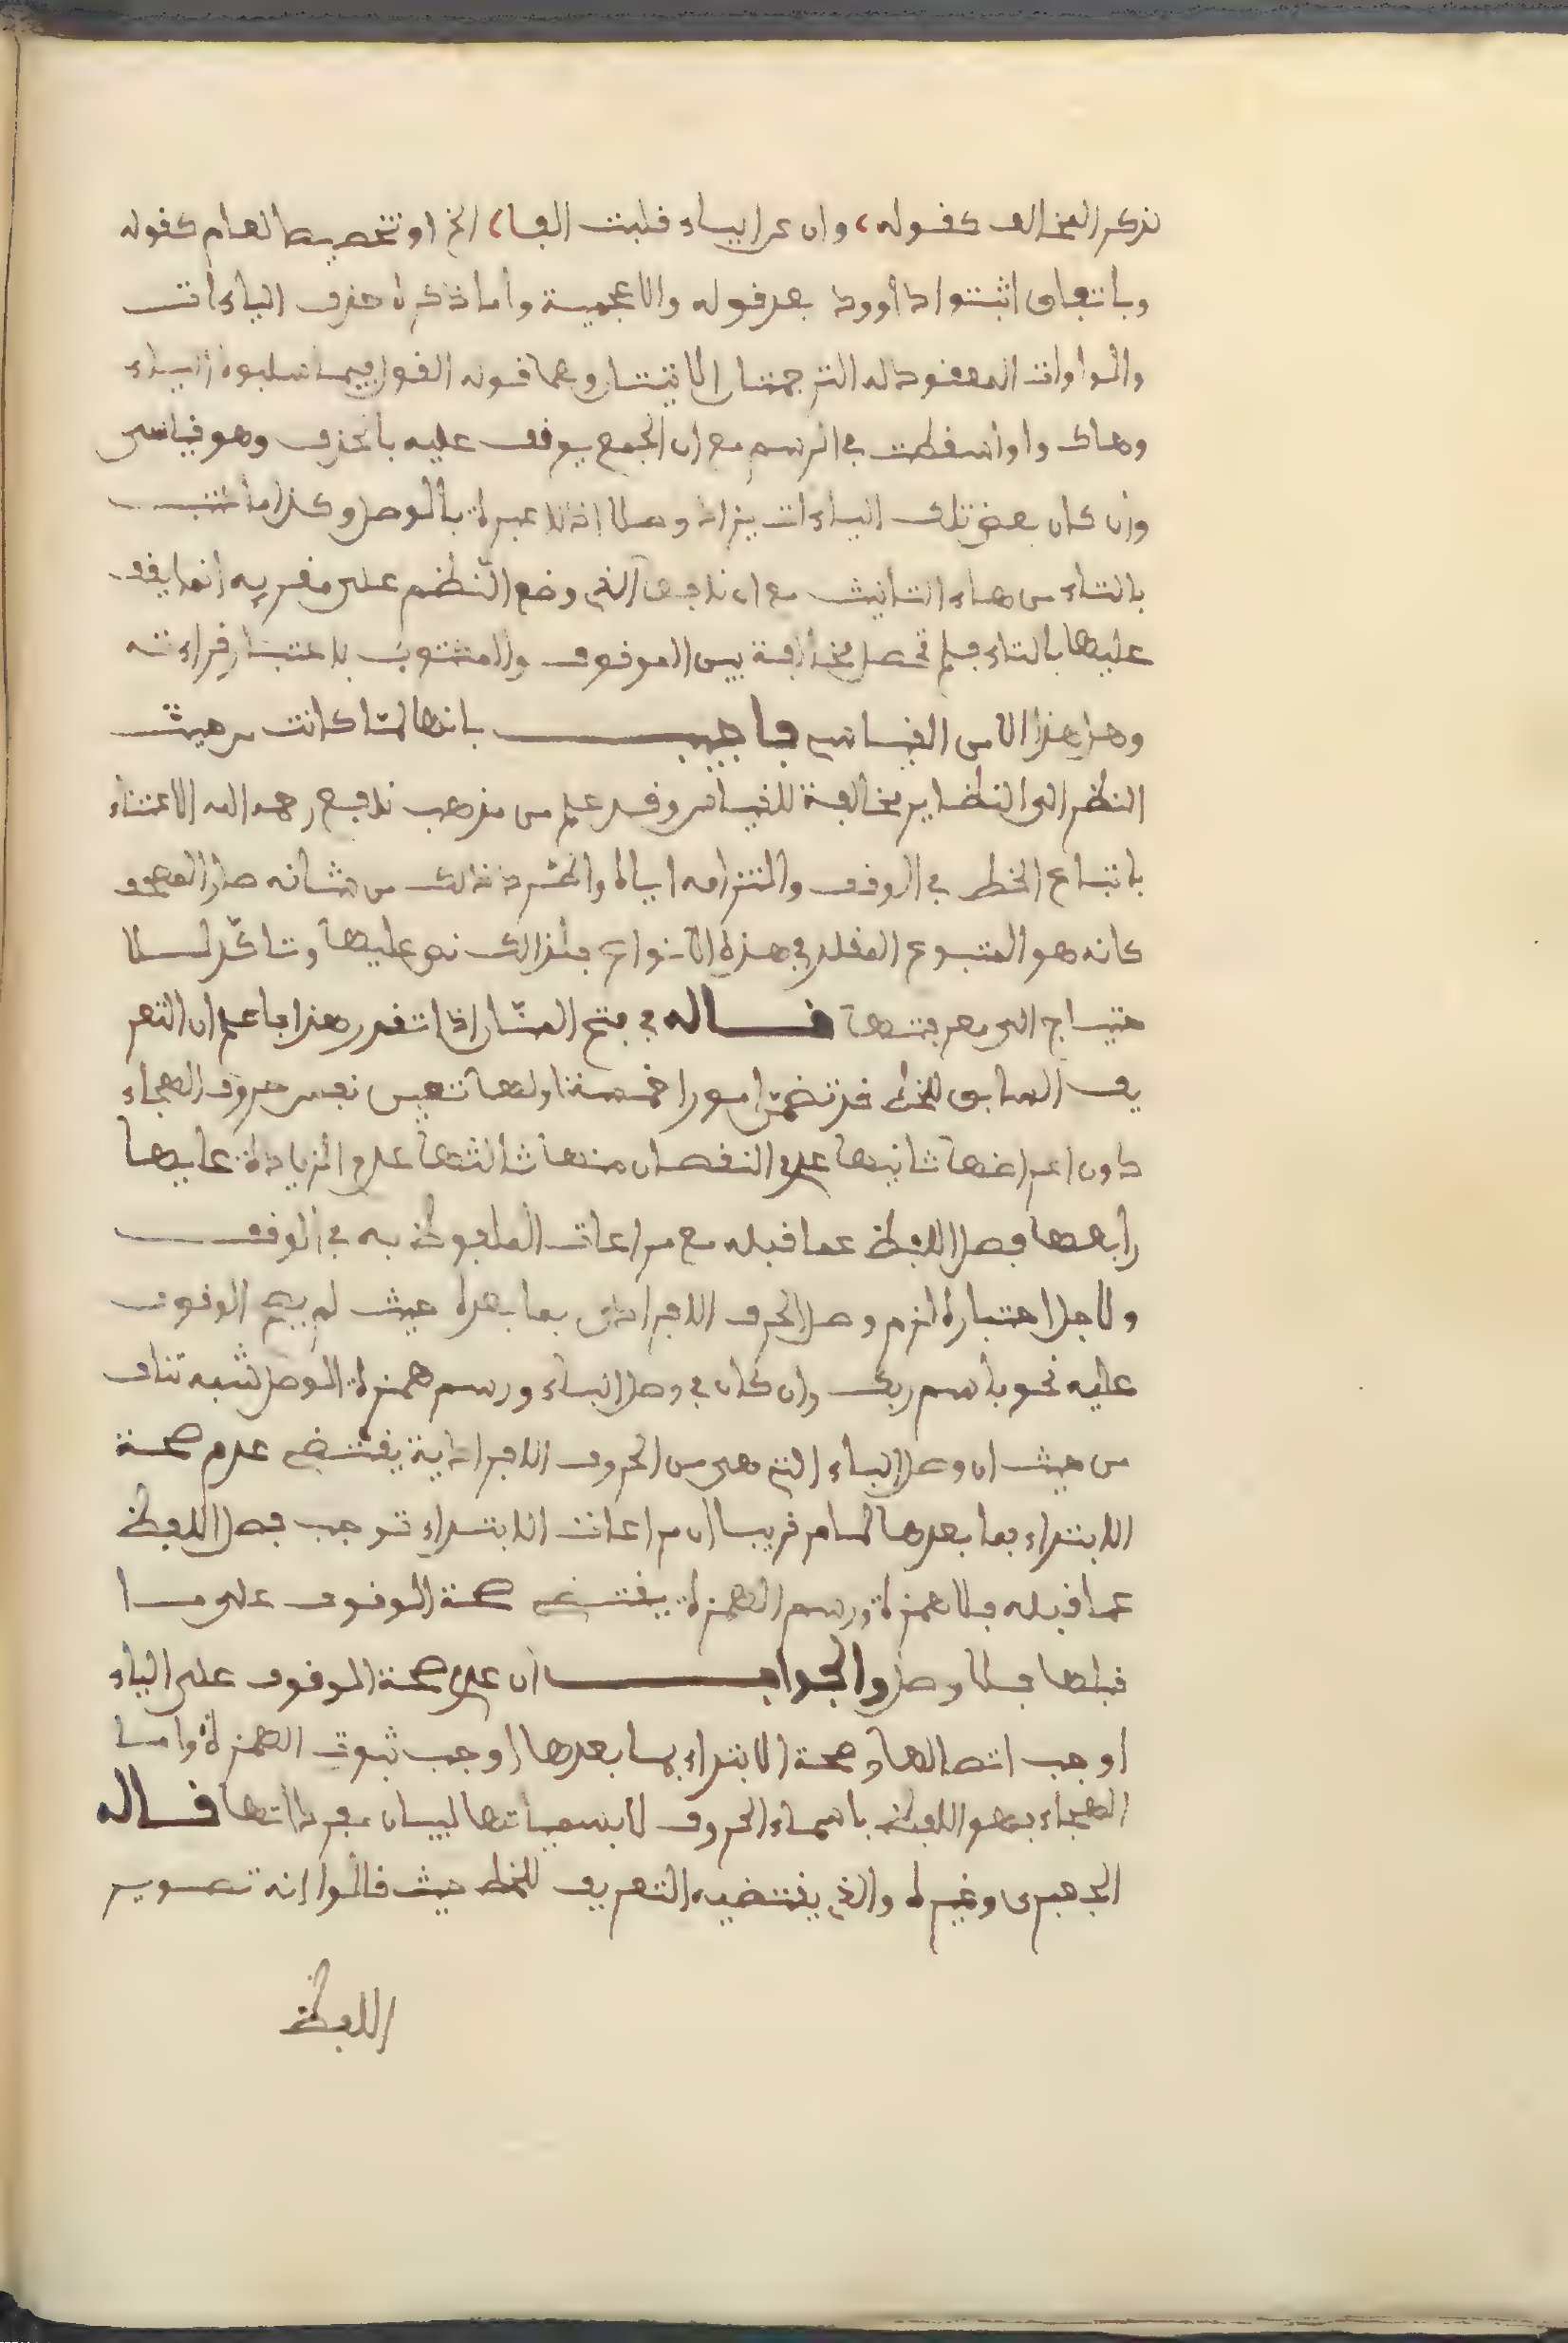 نذكر المخالف كقوله، وان عن الياء قلبت الفا، الخ او تخصيص العام كقوله
وباتفاق اثبتوا داوود بعد قوله والاعجمية وأما ذكره حذف الياءات
والواوات المعقود له الترجمتان الاتيتان وهما قوله القول فيما سلبوه الياء
وهاك واوا سقطت في الرسم مع ان الجمع يوقف عليه بالحذف وهو قياسي
وان كان بعض تلك الياءات يزاد وصلا اذ لا عبرة بالوصل وكذا ما كتب
بالتاء من هاء التانيث مع ان نافعا الذي وضع النظم على مقريه انما يقف
عليها بالتاء فلم تحصل مخالفة بين الموقوف والمكتوب باعتبار قراءته
وهل هذا الا من القياسي فاجيب بانها لما كانت من حيث
النظر الى النظاير مخالفة للقياس وقد علم من مذهب نافع رحمه الله الاعتناء
باتباع الخط في الوقف والتزامه اياه واطرد ذالك من شانه صار المصحف
كانه هو المتبوع المقلد في هذه الانواع فلذالك نص عليها وتاكد لــلا
حتياج الى معرفتها قـــاله في فتح المنان اذا تقرر هذا فاعلم ان التعر
يف السابق للخط قد تضمن امورا خمسة اولها تعين نفس حروف الهجاء
دون اعراضها ثانيها عدم النقصان منها ثالثها عدم الزيادة عليها
رابعها فصل اللفظ عما قبله مع مراعات الملفوظ به في الوقف
ولاجل اختباره لزم وصل الحرف الافرادي بما بعده حيث لم يصح الوقوف
عليه نحو باسم ربك وان كان في وصل الباء ورسم همزة الوصل شبه تناف
من حيث ان وصل الباء التي هي من الحروف الافرادية يقتضي عدم صحة
الابتداء بما بعدها لما مر قريبا ان مراعات الابتداء توجب فصل اللفظ
عما قبله فلا همزة ورسم الهمزة يقتضي صحة الوقوف على مــا
قبلها فلا وصل والجواب ان عدم صحة الوقوف على الباء
اوجب اتصالها وصحة الابتداء بما بعدها اوجب ثبوت الهمزة واما
الهجاء فهو اللفظ باسماء الحروف لا بمسمياتها لبيان مفرداتها قـــاله
الجعبري وغيره والذي يقتضيه التعريف للخط حيث قالوا انه تصوير
اللفظ